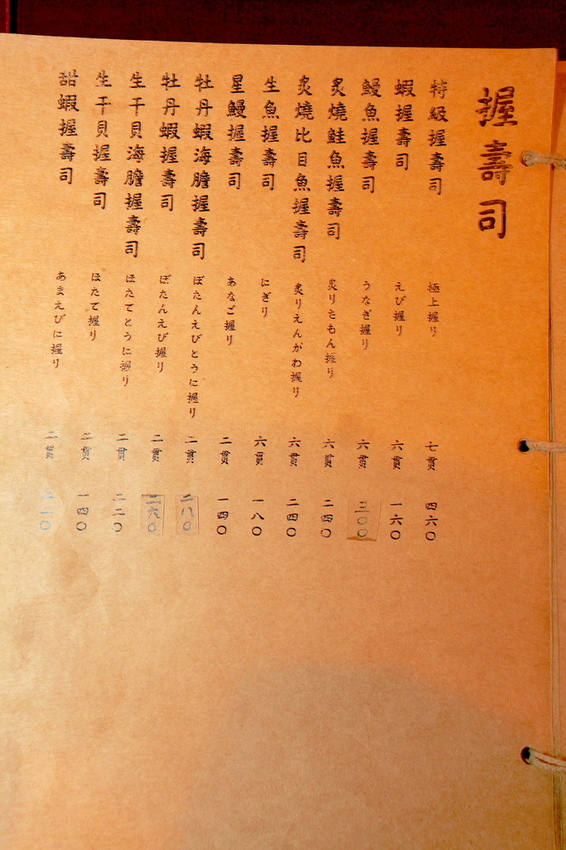 握壽司
特級握壽司 極上握り 七貫 四六〇
蝦握壽司 えび握り 六貫 一六〇
鰻魚握壽司 うなぎ握り 六貫 三〇〇
炙燒鮭魚握壽司 炙りさもん握り 六貫 二四〇
炙燒比目魚握壽司 炙りえんがわ握り 六貫 二四〇
生魚握壽司 にぎり 六貫 一八〇
星鰻握壽司 あなご握り 二貫 一四〇
牡丹蝦海膽握壽司 ぼたんえびとうに握り 二貫 二八〇
牡丹蝦握壽司 ぼたんえび握り 二貫 二六〇
生干貝海膽握壽司 ほたてとうに握り 二貫 二二〇
生干貝握壽司 ほたて握り 二貫 一四〇
甜蝦握壽司 あまえびに握り 二貫